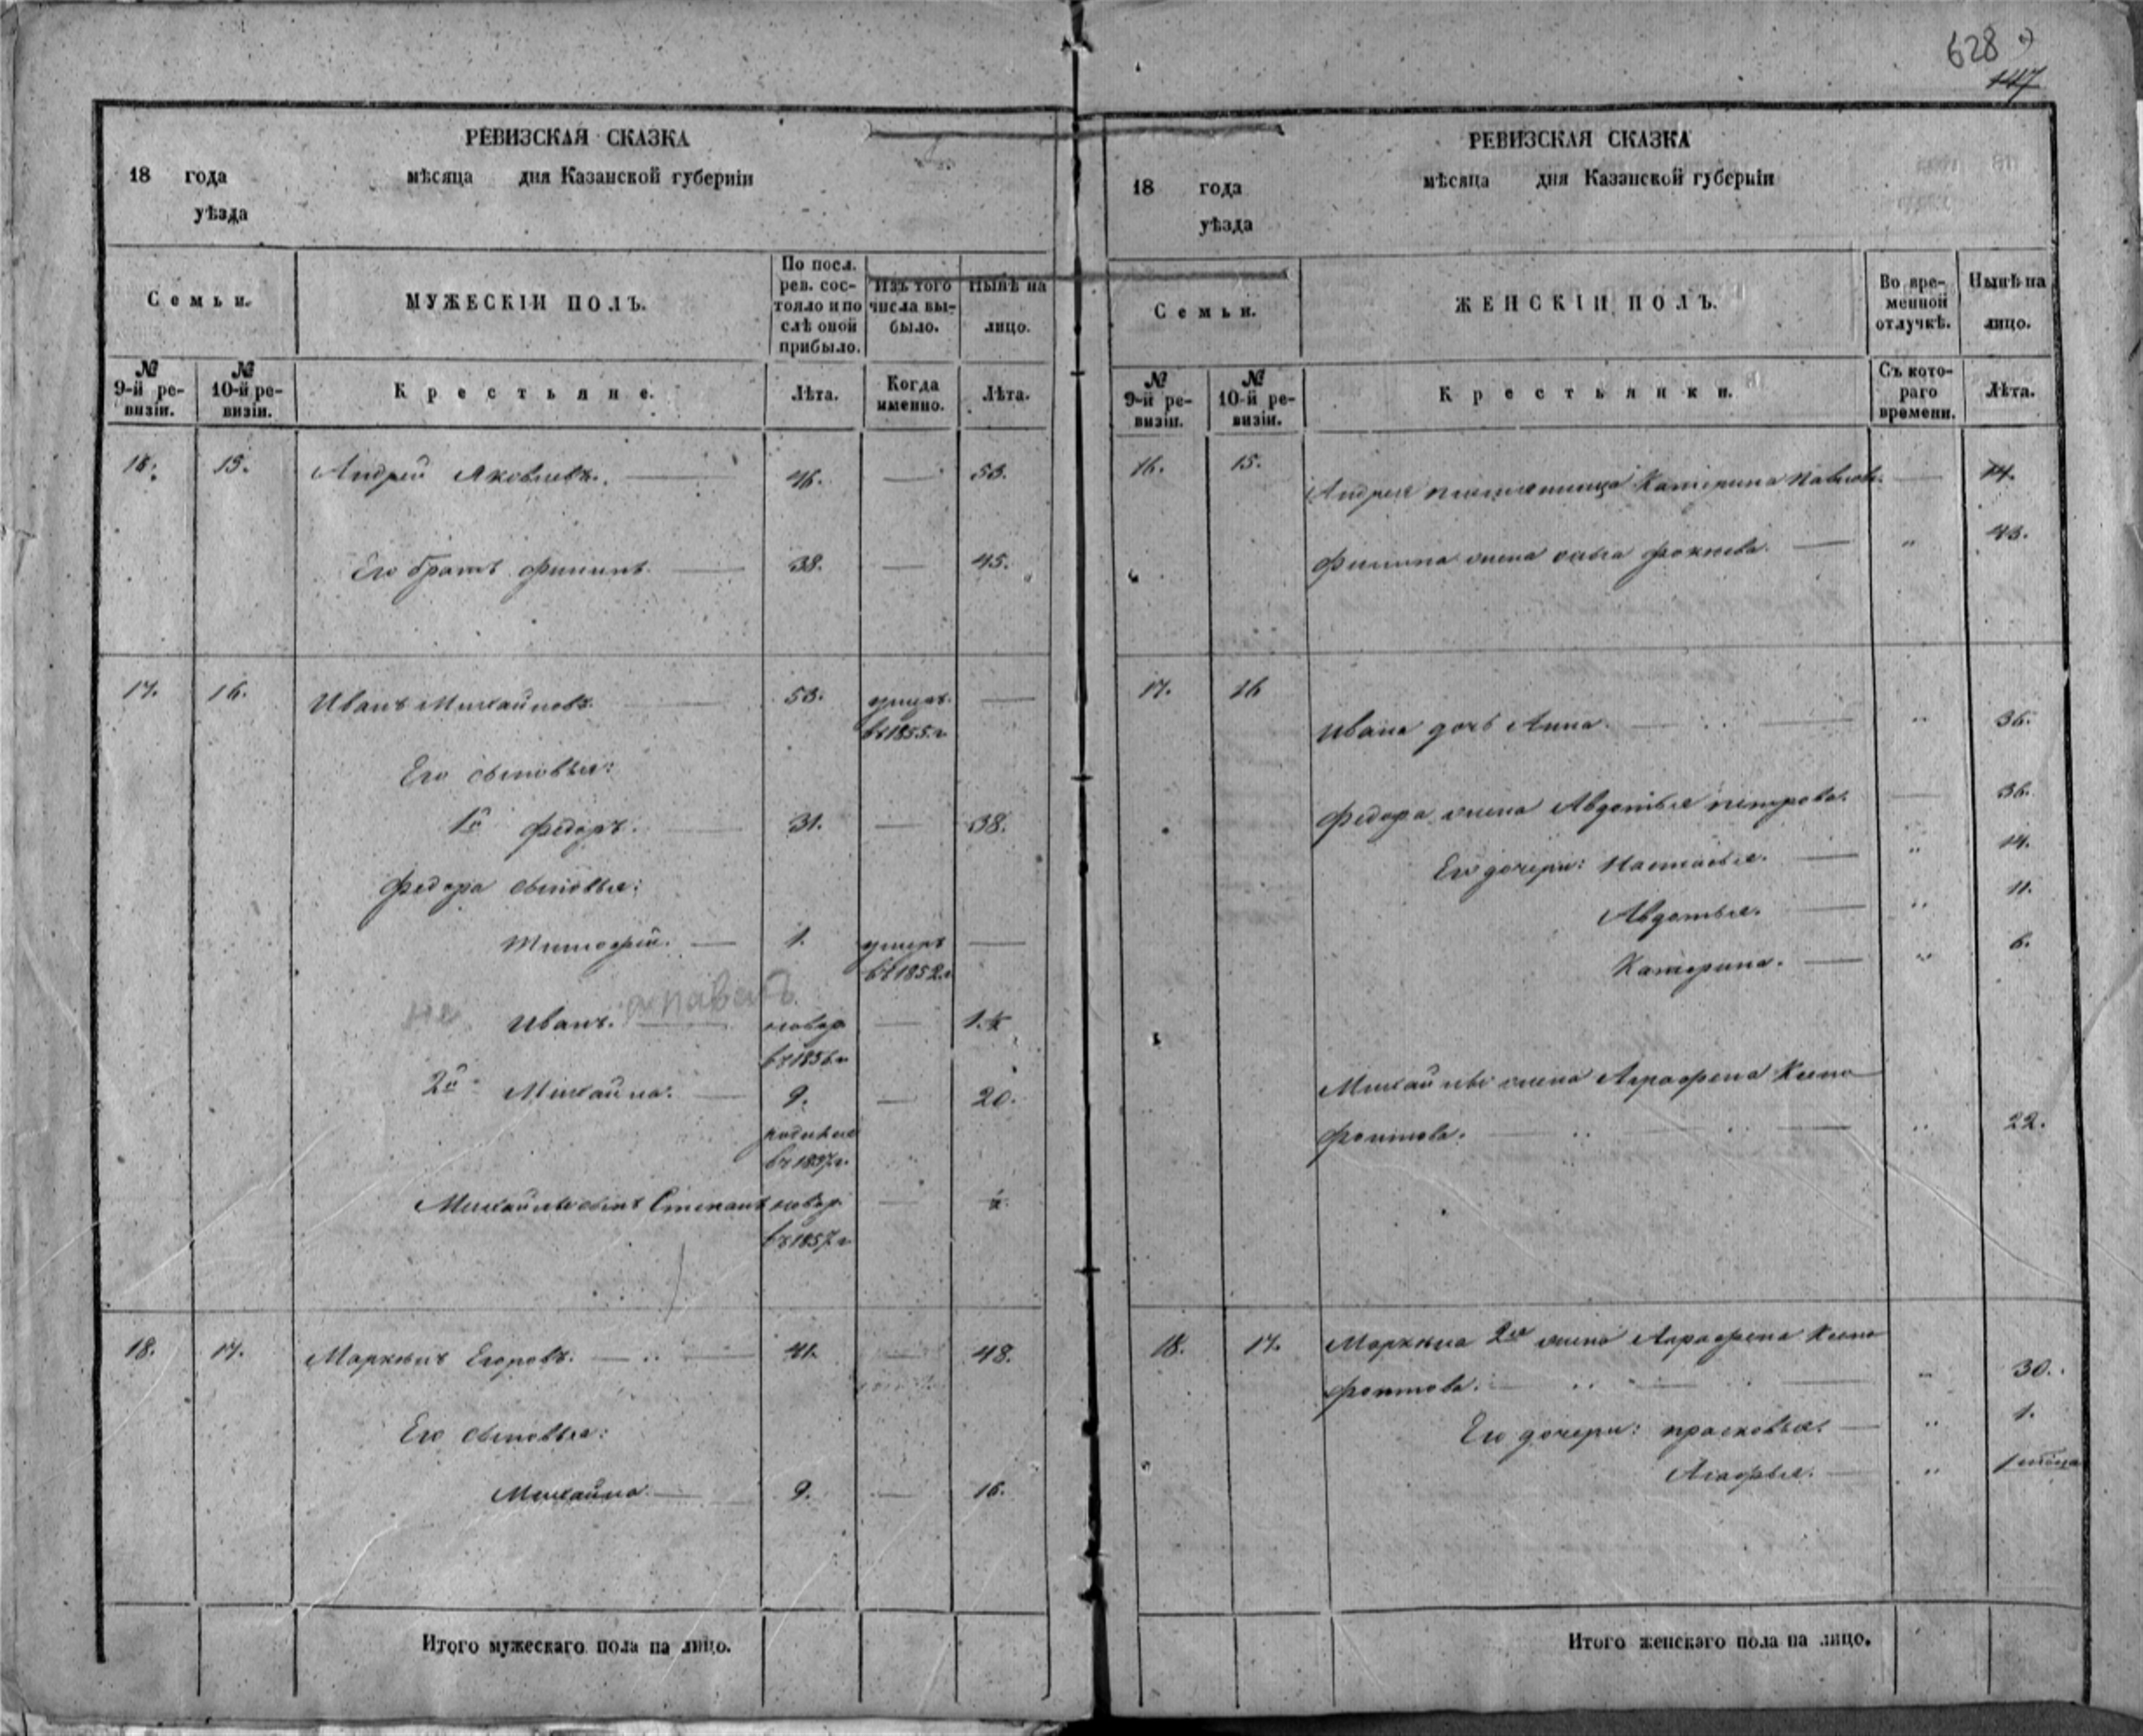 628
147
РЕВИЗСКАЯ СКАЗКА
18 года мѣсяца дня Казанской губерніи
уѣзда
Семьи.
МУЖЕСКІЙ ПОЛЪ.
По посл. рев. состояло и послѣ оной прибыло.
Изъ того числа выбыло.
Нынѣ на лицо.
№ 9-й ревизіи.
№ 10-й ревизіи.
Крестьяне.
Лѣта.
Когда именно.
Лѣта.
15. Андрей Яковлевъ. 46. — 53.
Его братъ Филипъ. 38. — 45.
17. 16. Иванъ Михайловъ. 53. умеръ въ 1855 г. —
Его сыновья:
1й Федоръ. 31. — 38.
Федора сыновья:
Тимофей. 1. умеръ въ 1852 г. —
не Иванъ. а павелъ новор въ 1856 г — 1.½
2й Михайла. 9. — 20.
въ 1837 г.
Михайлы сынъ Степанъ новор въ 1857 г — ½.
18. 17. Маркелъ Егоровъ. 41. — 48.
Его сыновья:
Михайла 9. — 16.
Итого мужескаго пола на лицо.
РЕВИЗСКАЯ СКАЗКА
18 года мѣсяца дня Казанской губерніи
уѣзда
Семьи.
ЖЕНСКІЙ ПОЛЪ.
Во временной отлучкѣ.
Нынѣ на лицо.
№ 9-й ревизіи.
№ 10-й ревизіи.
Крестьянки.
Съ котораго времени.
Лѣта.
16. 15. Андрея племянница Катерина Павлова. — 14.
Филипа жена 43.
17. 16 Ивана дочь Анна. 36.
Федора жена Авдотья Петрова. — 36.
Его дочери: Настасья. 14.
Авдотья. 11.
Катерина. 6.
Михайлы жена Аграфена Ксено
фонтова. 22.
18. 17. Маркела 2я жена Аграфена Ксено
фонтова. 30.
Его дочери: Прасковья. 1.
Агафья.
Итого женскаго пола на лицо.